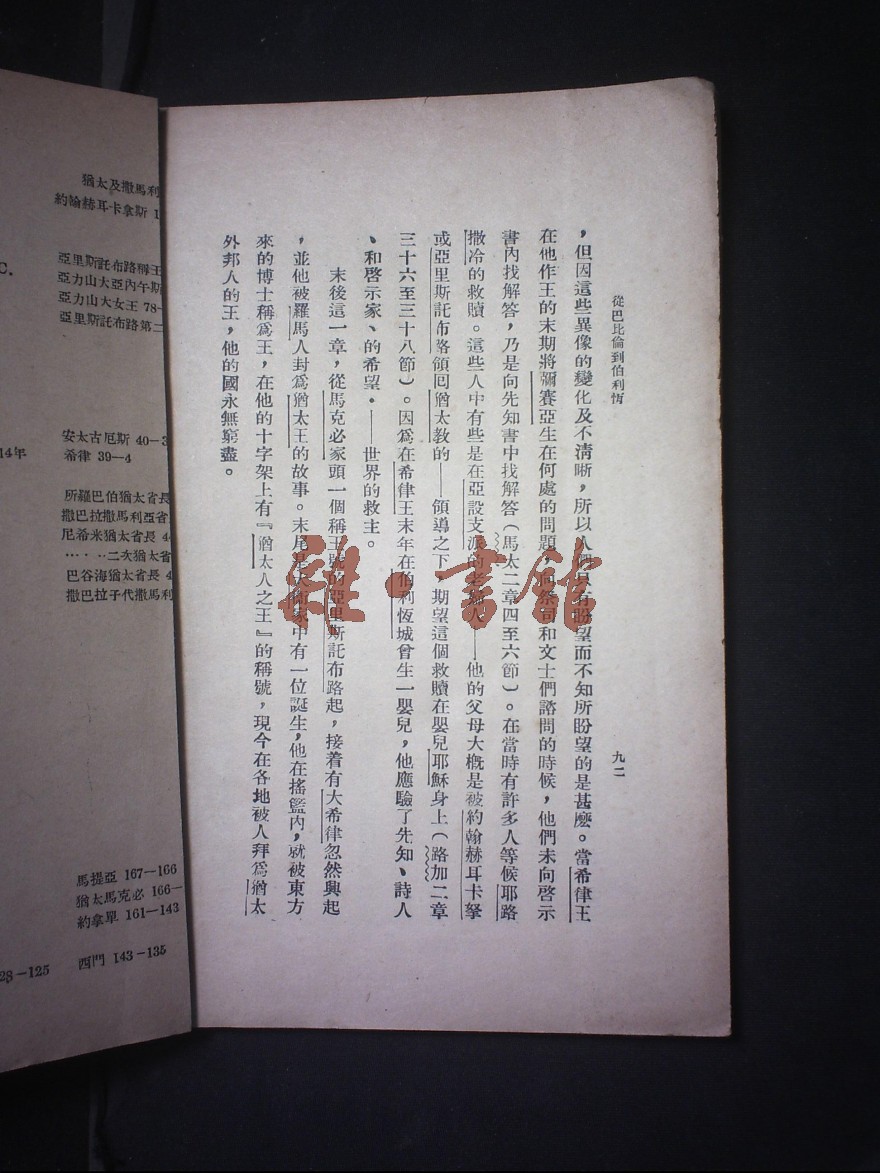 從巴比倫到伯利恆
九二
，但因這些異像的變化及不清晰，所以人們只有盼望而不知所盼望的是甚麼。當希律王
在他作王的末期將彌賽亞生在何處的問題，向祭司和文士們諮問的時候，他們未向啓示
書內找解答，乃是向先知書中找解答（馬太二章四至六節）。在當時有許多人等候耶路
撒冷的救贖。這些人中有些是在亞設支派的老婦人——他的父母大槪是被約翰赫耳卡拏
或亞里斯託布路領囘猶太教的——領導之下，期望這個救贖在嬰兒耶穌身上（路加二章
三十六至三十八節）。因爲在希律王末年在伯利恆城曾生一嬰兒，他應驗了先知、詩人
、和啓示家、的希望·——世界的救主。
末後這一章，從馬克必家頭一個稱王號的亞里斯託布路起，接着有大希律忽然興起
，並他被羅馬人封爲猶太王的故事。末尾是大衛家中有一位誕生，他在搖籃內，就被東方
來的博士稱爲王，在他的十字架上有『猶太人之王』的稱號，現今在各地被人拜爲猶太
外邦人的王，他的國永無窮盡。
猶太及撒馬利
約翰赫耳卡拿斯 1
C.
亞里斯託布路稱王
亞力山大亞內午斯
亞力山大女王 78-
亞里斯託布路第二
安太古厄斯 40-3
14年
希律 39-4
所羅巴伯猶太省長
撒巴拉撒馬利亞省
尼希米猶太省長 4
二次猶太省
巴谷海猶太省長 4
撒巴拉子代撒馬利
馬提亞 167-166
猶太馬克必 166-
約拿單 161-143
西門 143-135
28-125
雜·書館